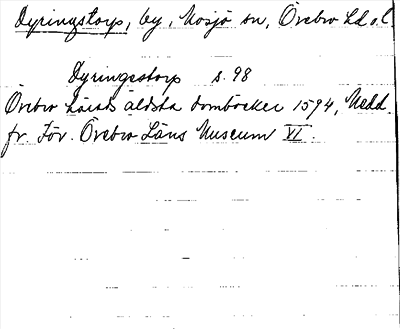 Dyringstorp, by, Mosjö sn, Örebro Ld o. L
Dyringestorp s. 98
Örebro härads äldsta domböcker 1594, Medd.
fr. För. Örebro Läns Museum VI.